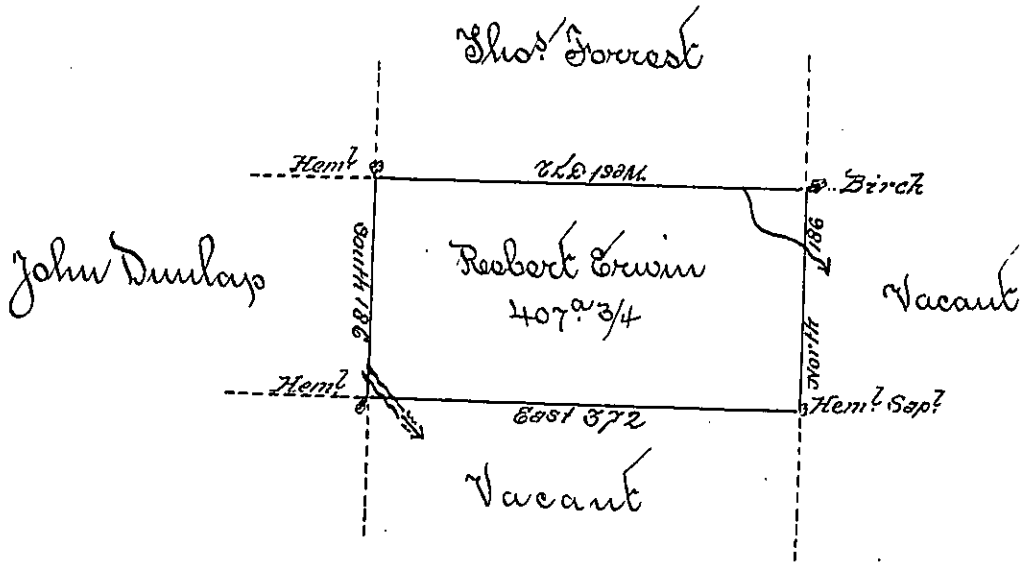 Thos. Forrest
Heml.
West 372
Birch
John Dunlap
South 186
Robert Erwin
407a. 3/4
North 186
Vacant
Heml.
East 372
Heml. Sapl.
Vacant